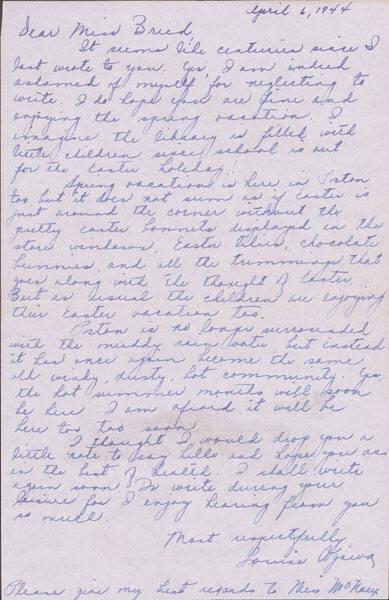 April 6, 1944
Dear Miss Breed,
It seems like centuries since I
last wrote to you. Yes, I am indeed
ashamed of myself for neglecting to
write. I do hope you are fine and
enjoying the spring vacation. I
imagine the library is filled with
little children since school is out
for the Easter holiday.
Spring vacation is here in Poston
too but it does not seem as if Easter is
just around the corner without the
pretty easter bonnets displayed in the
store windows, Easter lilies, chocolate
bunnies, and all the trimmings that
goes along with the thought of Easter.
But as usual the children are enjoying
their Easter vacation too.
Poston is no longer surrounded
with the muddy rain water but instead
it has once again become the same
old windy, dusty, hot community. Yes
the hot summer months will soon
be here. I am afraid it will be
here too too soon.
I thought I would drop you a
little note to say hello and hope you are
in the best of health. I shall write
again soon. Do write during your
leisure for I enjoy hearing from you
so much.
Most respectfully,
Louise Ogawa
Please give my best regards to Miss McNary